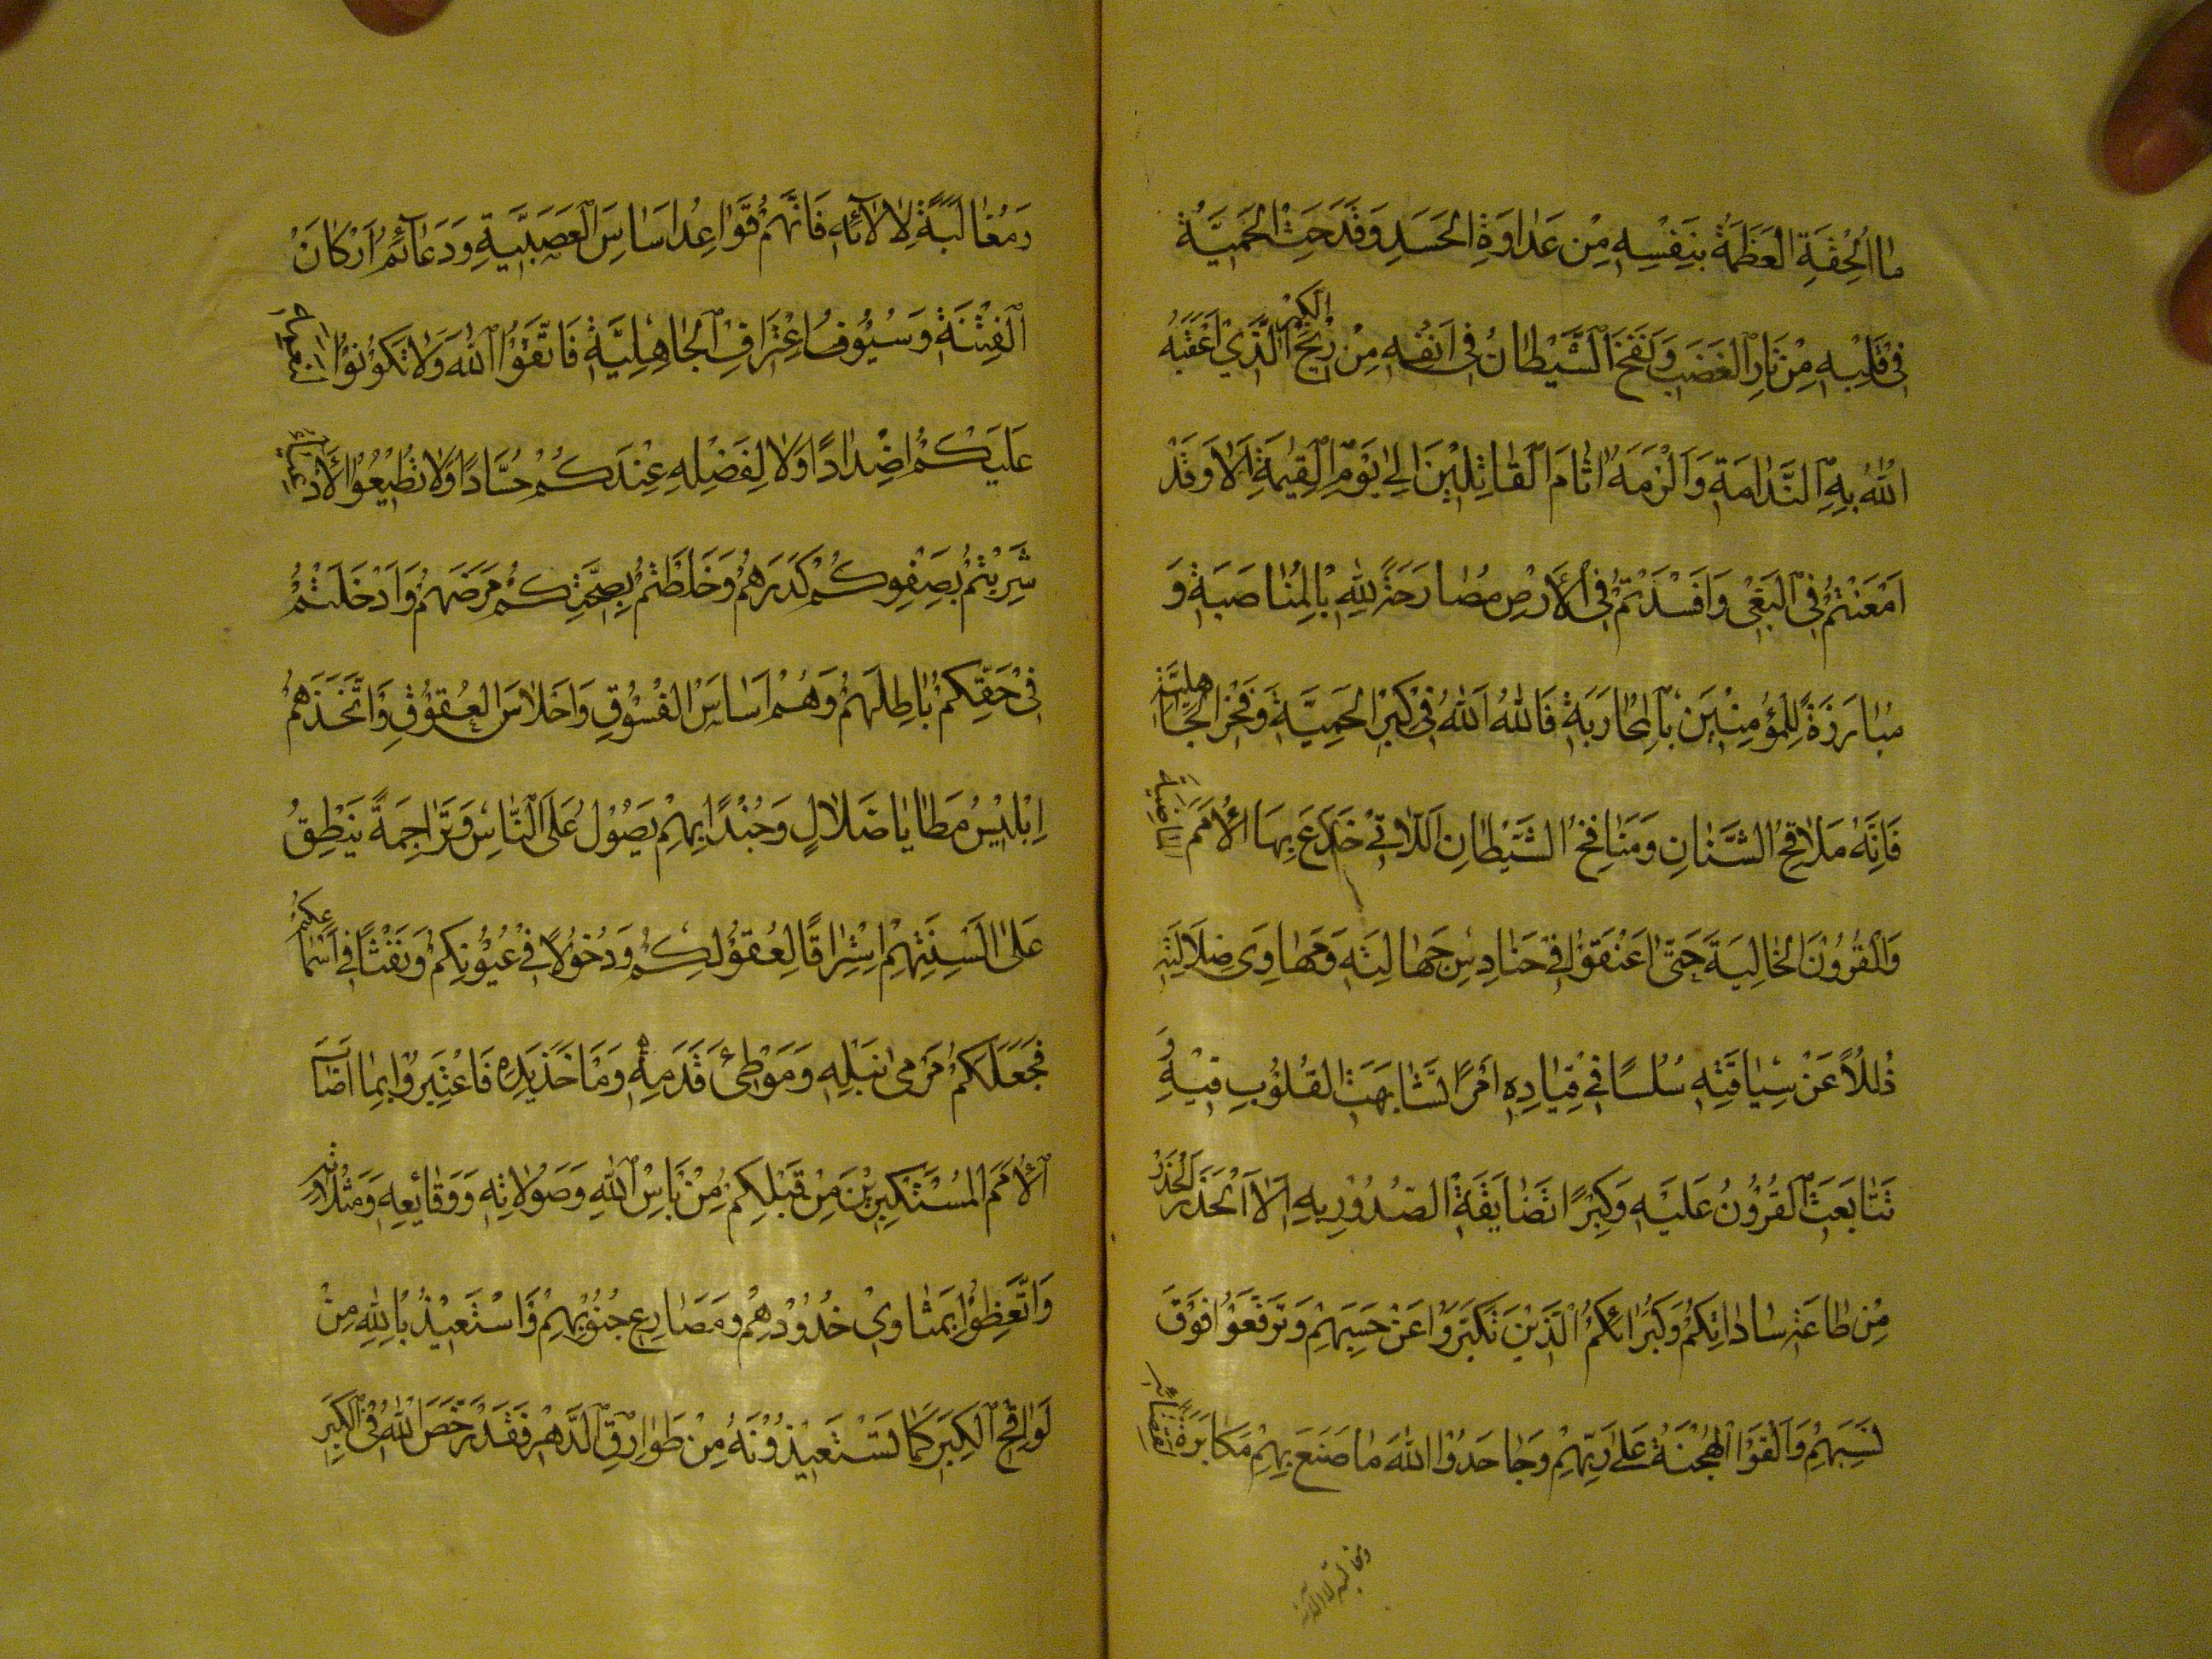 ما الحقة العظمة بنفسه من عداوة الحسد وقدحت الحمية
في قلبه من نار الغضب ونفخ الشيطان في انفه من ريح الكبر الذي اعقبه
الله به الندامة والزمه اثام القاتلين الى يوم القيمة الا وقد
امعنتم في البغي وافسدتم في الأرض مصارحة لله بالمناصبة و
مبارزة للمؤمنين بالمحاربة فالله الله في كبر الحمية وفخر الجاهلية
فانه ملاقح الشنان ومنافخ الشيطان اللاتي خدع بها الأمم الماضية
والقرون الخالية حتى اعنقوا في حنادس جهالته ومهاوي ضلالته
ذللا عن سياقته سلسا في قياده امرا تشابهت القلوب فيه و
تتابعت القرون عليه وكبرا تضايقة الصدور به الا الحذر الحذر
من طاعته ساداتكم وكبرائكم الذين تكبروا عن حسبهم وترفعوا فوق
نسبهم والقوا الهجنة على ربهم وجاحدوا الله ما صنع بهم مكابرة لقضائه
ومغالبة لالائه
ومغالبة لالائه فانهم قواعد اساس العصبية ودعائم اركان
الفتنة وسيوف اعتراف الجاهلية فاتقوا الله ولا تكونوا
عليكم اضدادا ولا لفضله عندكم حسادا ولا تطيعوا
شربتم بصفوكم كدرهم وخلطتم بصحتكم مرضهم وادخلتم
في حقكم باطلهم وهم اساس الفسوق واحلاس العقوق واتخذهم
ابليس مطايا ضلال وجندا بهم يصول على الناس وتراجمة ينطق
على السنتهم اشراقا لعقولكم ودخولا في عيونكم ونفثا في اسماعكم
فجعلكم مرمى نبله وموطئ قدمه وماخذ يده فاعتبروا بما اصاب
الأمم المستكبرين من قبلكم من باس الله وصولاته ووقايعه ومثلاته
واتعظوا بمثاوي خدودهم ومصارع جنوبهم واستعيذ بالله من
لواقح الكبر كما تستعيذونه من طوارق الدهر فقد رخص الله في الكبر